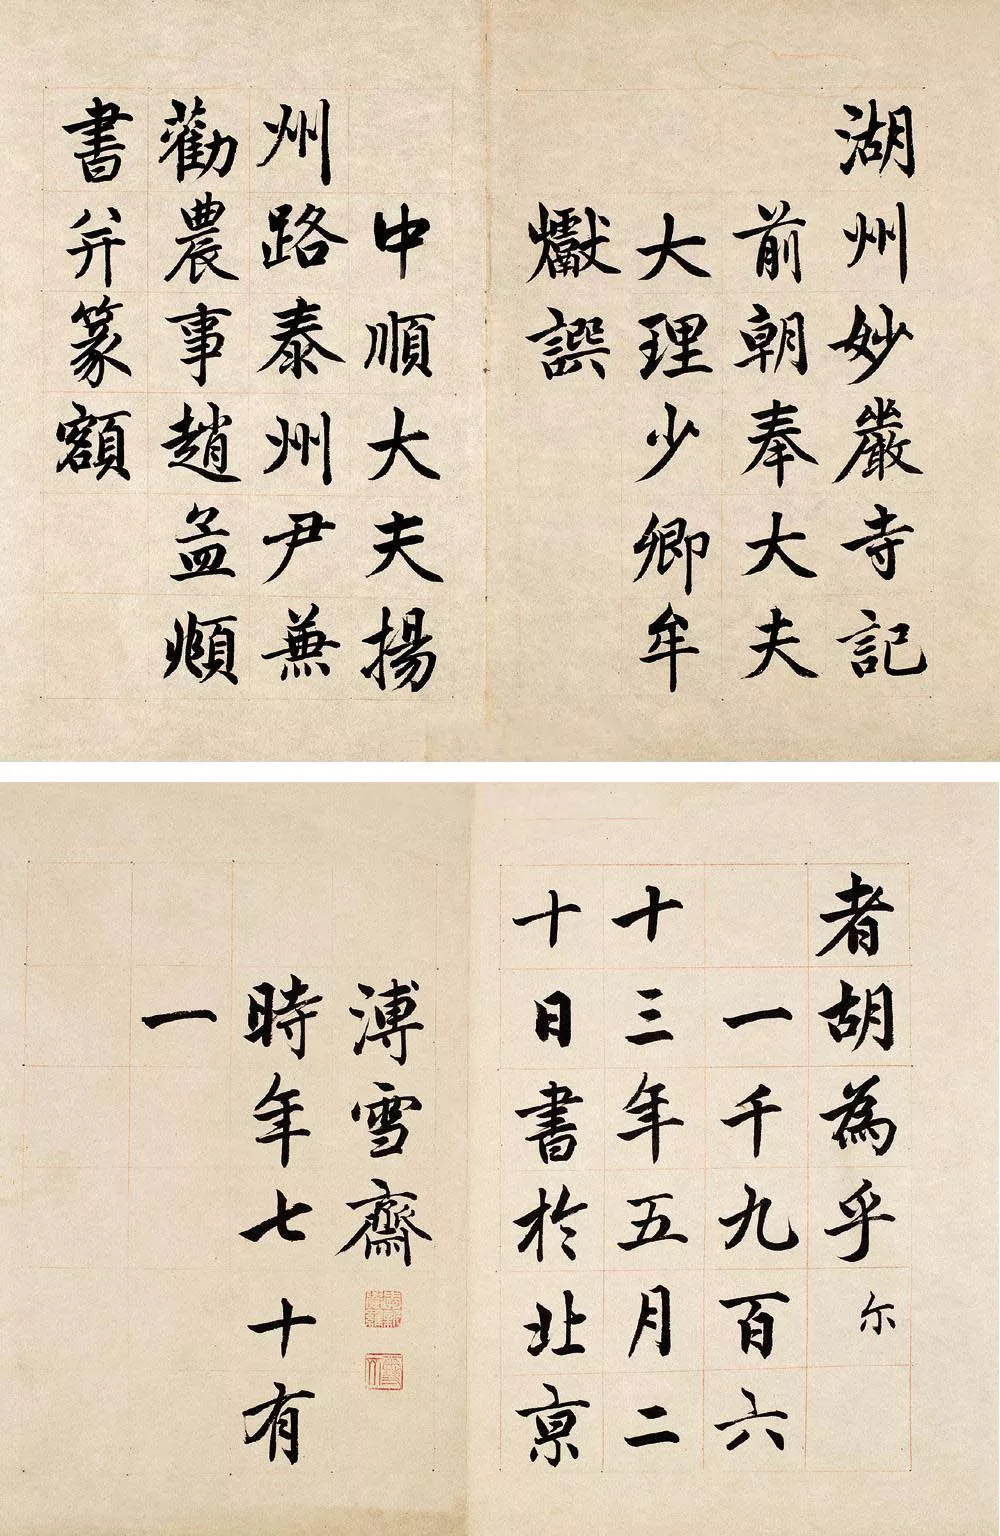 湖州妙嚴寺記
前朝奉大夫
大理少卿牟
巘譔
中順大夫揚
州路泰州尹兼
勸農事趙孟頫
書并篆額
者胡為乎
尔
一千九百六
十三年五月二
十日書於北京
溥雪齋
時年七十有
一